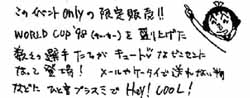 このイベントonlyの限定販売!!
WORLD CUP '98 (サッカー)を盛り上げた
数々の選手たちがキュートなピンセットに
なって登場! メールやケータイで送れない物
などに ひと言プラスミで Hey! COOL!